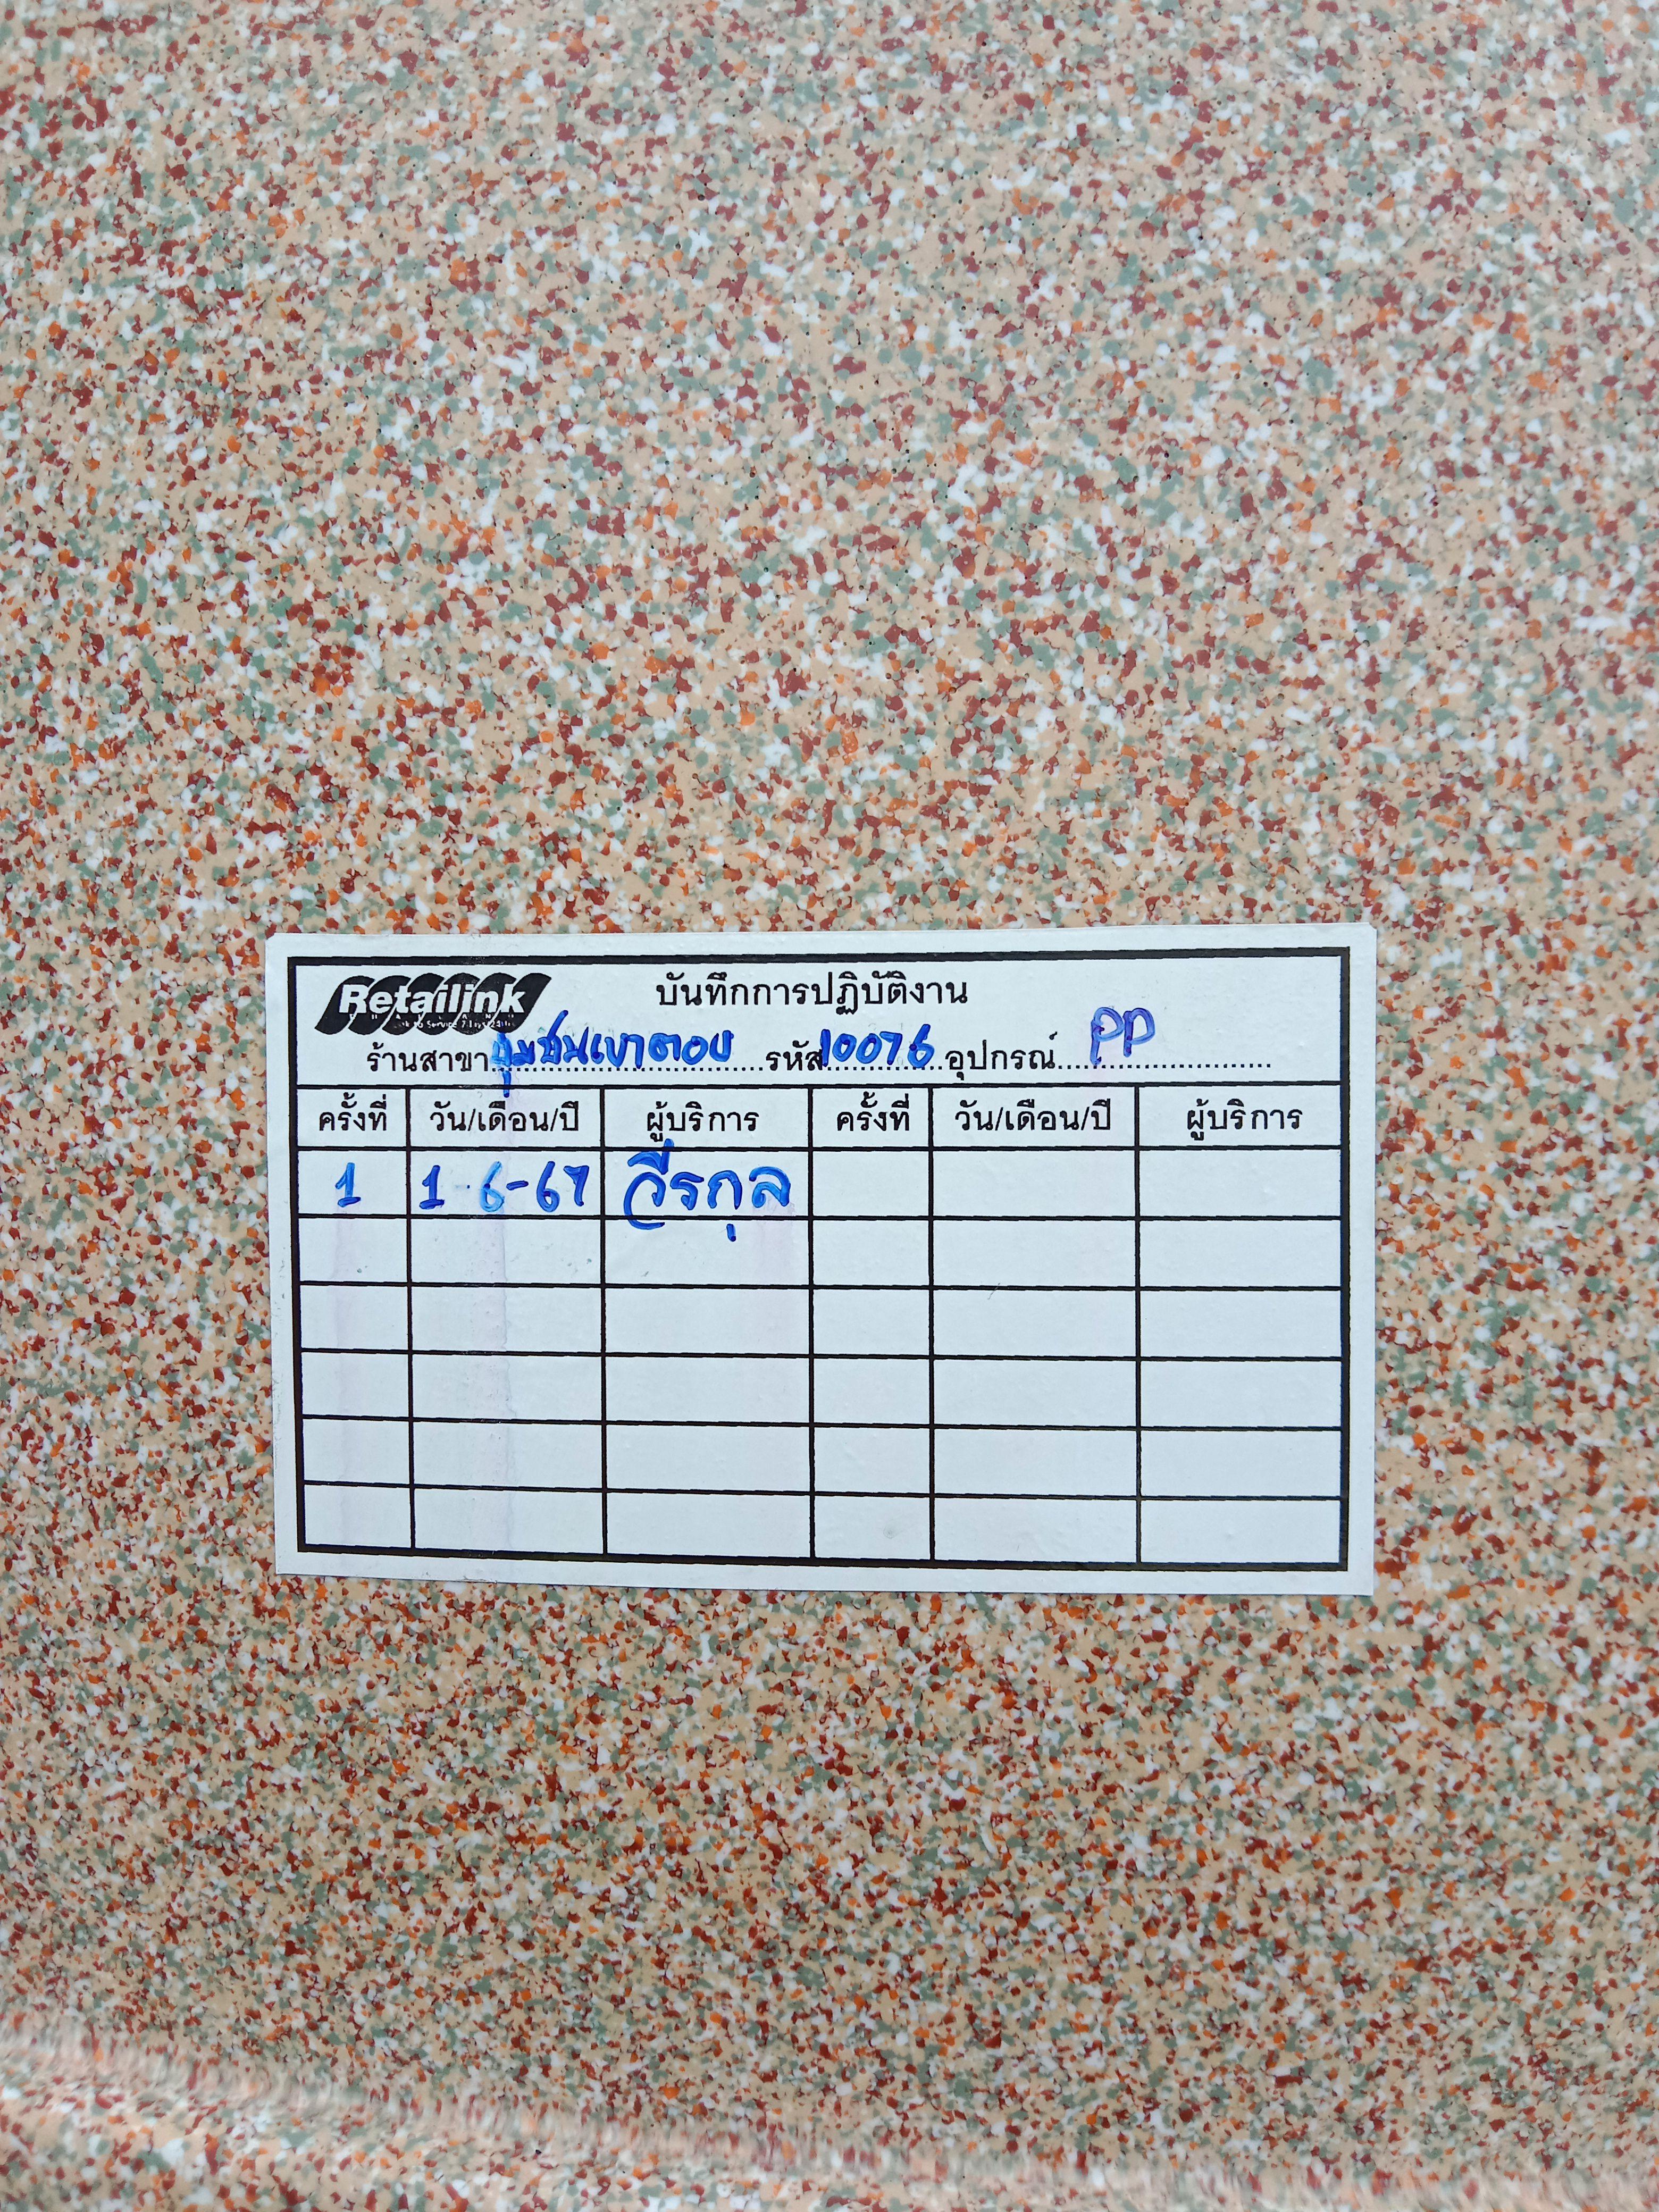 Retailink
บันทึกการปฏิบัติงาน
ร้านสาขา ชุมชนเขาตอง รหัส 10076 อุปกรณ์ PP
ครั้งที่ วัน/เดือน/ปี ผู้บริการ ครั้งที่ วัน/เดือน/ปี ผู้บริการ
1 1-6-67 วีรกุล